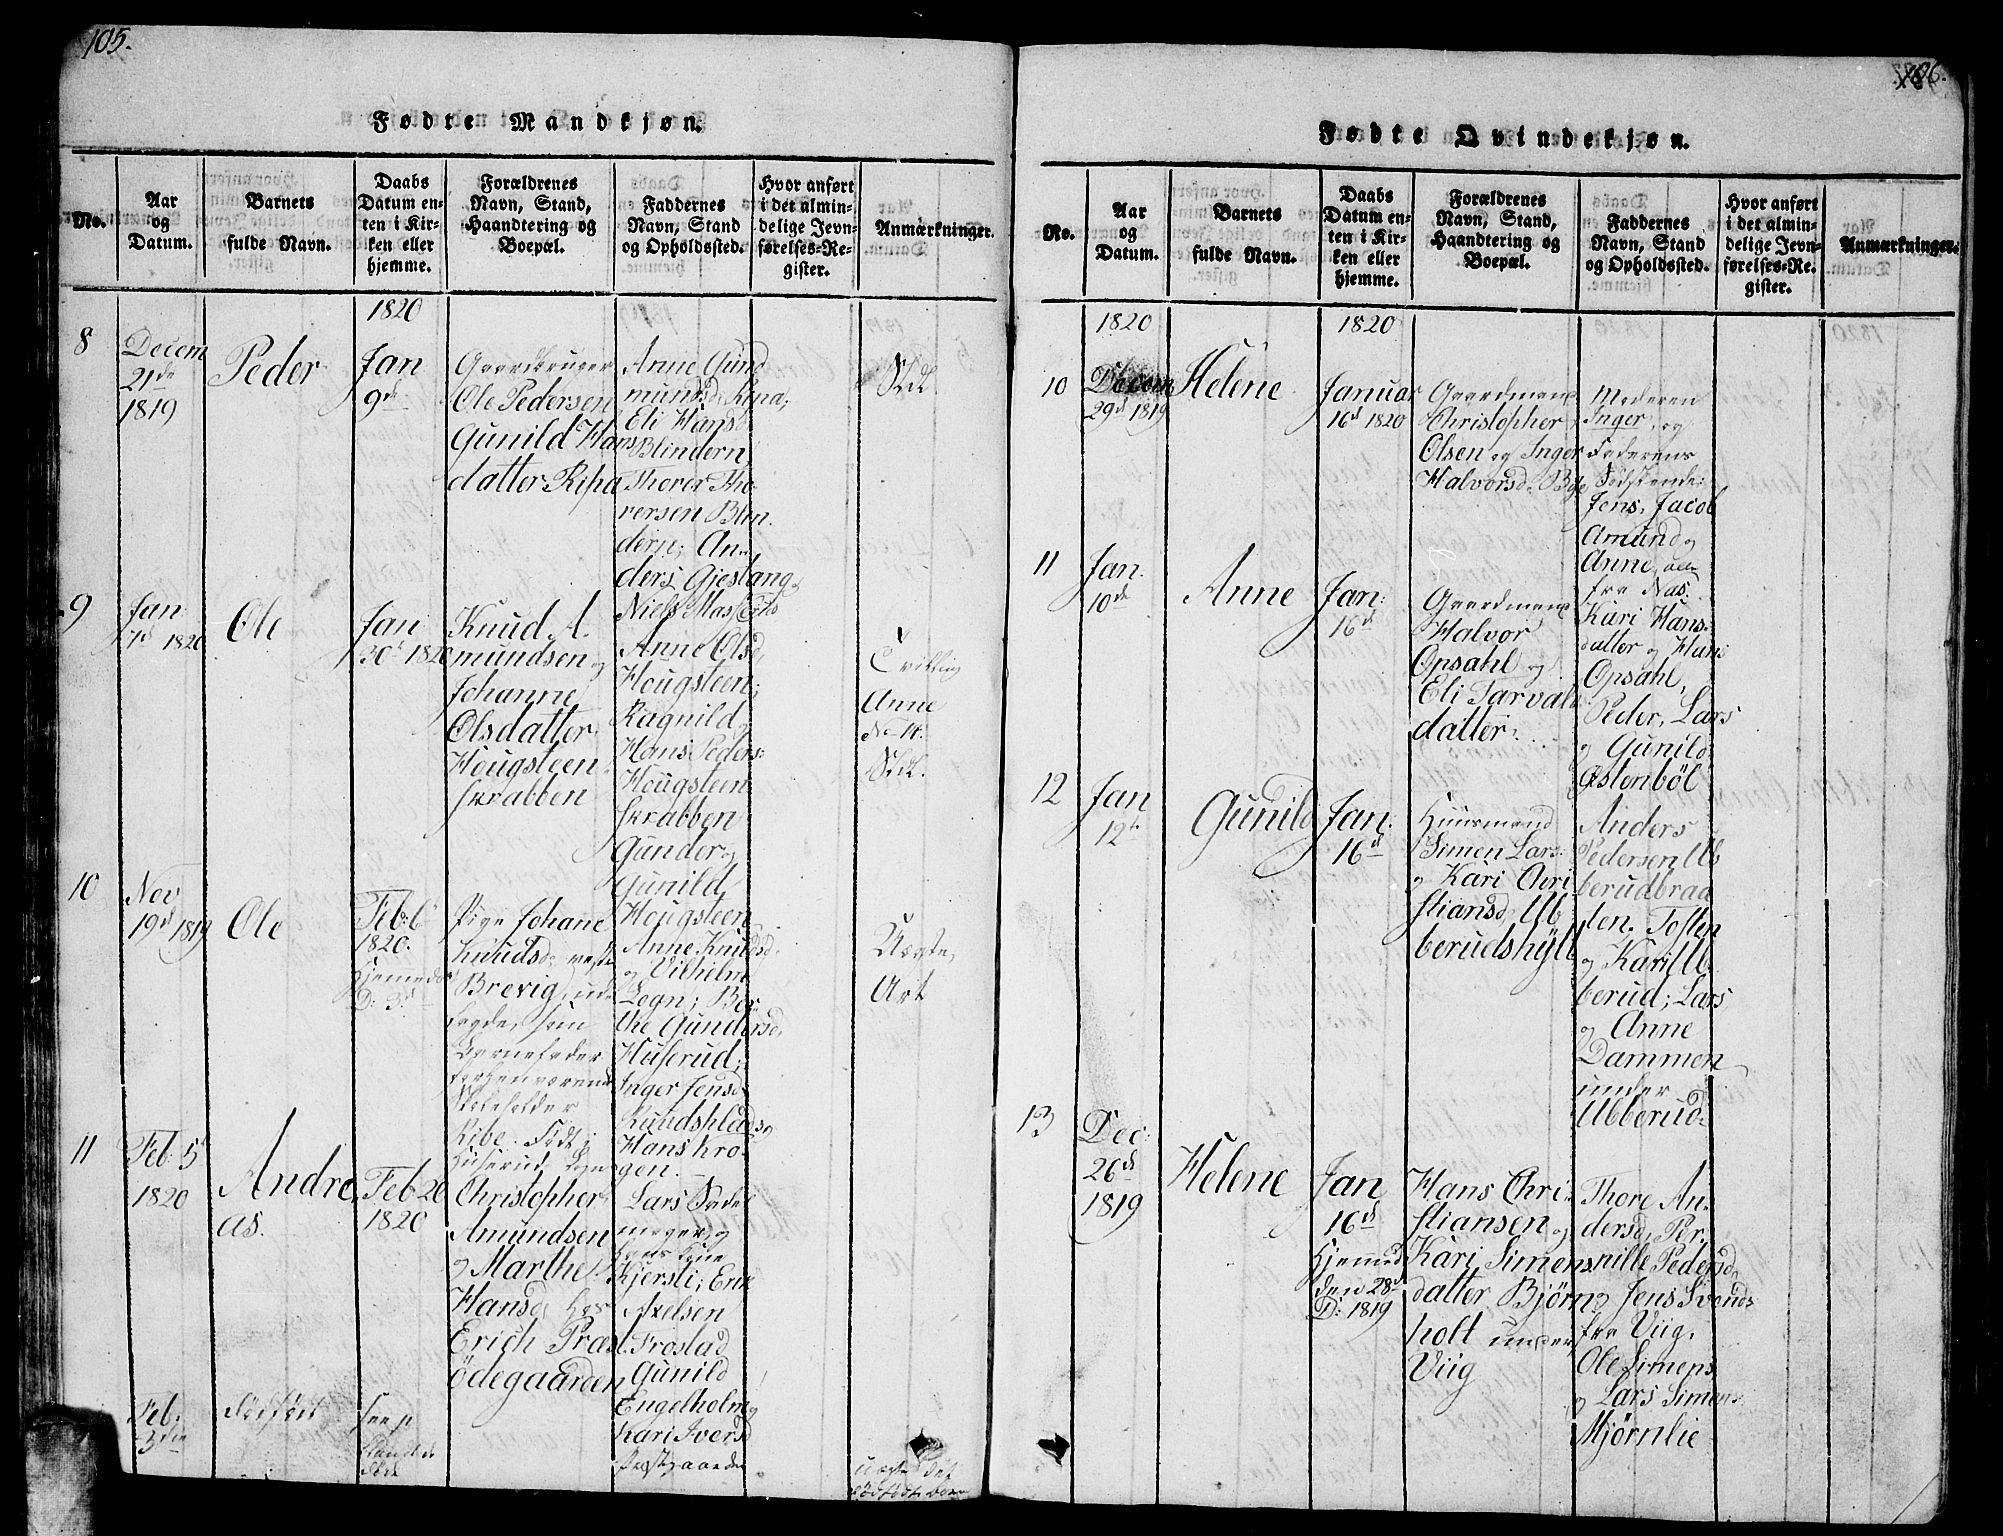 105.
Fødte Mandkjøn.
No.
Aar
og
Datum.
Barnets
fulde Navn.
Daabs
Datum en-
ten i Kir-
ken eller
hjemme.
Forældrenes
Navn, Stand,
Haandtering og
Boepæl.
Faddernes
Navn, Stand
og Opholdssted.
Hvor anført
i det almin-
delige Jevn-
førelses-Re-
gister.
Anmærkninger.
8
Decem
21de
1819
Peder
1820
Jan
9d
Gaardbruger
Ole Pedersen
Gunild Hans
datter Ripa
Anne Gund
mundsd. Ripa;
Eli Hans
Blindern
Thorer Tho
rersen Blin
dern; An
ders Gjestang
9
Jan
7d 1820
Ole
Jan
30t 1820
Knud A
mundsen og
Johanne
Olsdatter
Hougsteen
skrabben
Niels
Anne Olsd,
Hougsteen;
Ragnild
Hans Peders:
Hougsteen
skrabben
Gunder og
Gunild
Hougsteen
Tvilling
Anne
No 14.
10
Nov
19d 1819
Ole
Feb: 6
1820.
Hjemedøb
D: 3d
Pige Johane
Knudsd.
Brevig, ud
lagde, som
Barnefader
forhenværende
Skoleholder
Ribe. Født i
Huserud
Anne Knudsd.
og Vilhelm
Logn; Ber
the Gundersd,
Huserud;
Inger Jensd
Rundshlad
Hans Kro
gen.
Uægte
11
Feb: 5
1820
Andre
as.
Feb 20
1820
Christopher
Amundsen
og Marthe
Hansd, hos
Erich Præst
ödegaarden
Lars
meyer og
hans Kone
Kjersti; Erik
Axelsen
Frostad
Gunild
Engelholm og
Kari Ivers
Præstgaarden
Feb:
3die
Dødfødt
see p
uægte
dødfødt barn
106.
Fødte Qvindekjøn.
No.
Aar
og
Datum.
Barnets
fulde Navn.
Daabs
Datum en-
ten i Kir-
ken eller
hjemme.
Forældrenes
Navn, Stand,
Haandtering og
Boepæl.
Faddernes
Navn, Stand
og Opholdssted.
Hvor anført
i det almin-
delige Jevn-
førelses-Re-
gister.
Anmærkninger.
1820
1820
10
Decem
29d 1819
Helene
Januar
16d 1820
Gaardmand
Christopher
Olsen og Inger
Halvorsd. Bye
Moderen
Inger, og
Faderens
Sødskende:
Jens, Jacob
Amund og
Anne, alle
fra Nas.
11
Jan.
10de
Anne
Jan:
16d
Gaardmand
Halvor
Opsahl og
Eli Tarvald
datter.
Kari Hans
datter og Hans
Opsahl,
Peder, Lars
og Gunild
Østenböl
12
Jan
12te
Gunild
Jan:
16d
Huusmand
Simen Lars:
og Kari Chri
stiansd, Ub
berudshyll
Anders
Pedersen Ub
berudbraa
ten. Tosten
og Kari Ub
berud; Lars
og Anne
Dammen
under
Ubberud
13
Dec:
26d
1819
Helene
Jan
16d
Hjemmed
den 28d
D: 1819
Hans Chri
stiansen og
Kari Simens
datter Bjørn
holt under
Viig
Thore An
dersd, Per
nille Pedersd
og Jens Svends
fra Viig.
Ole Simens
og Lars Simens
Mjørnlie